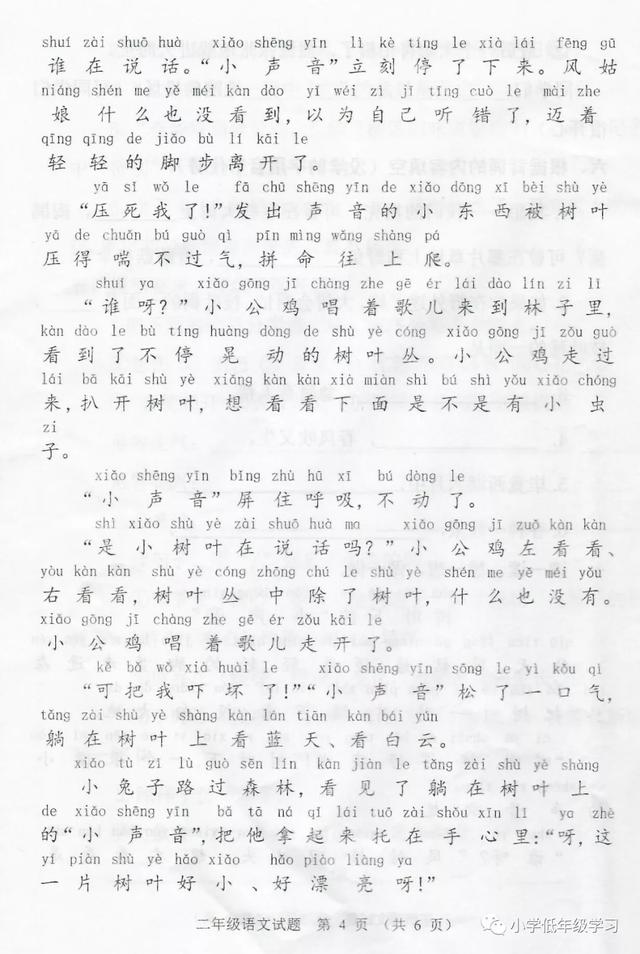 shuí zài shuō huà xiǎo shēng yīn lì kè tíng le xià lái fēng gū
谁在说话。“小声音”立刻停了下来。风姑
niáng shén me yě méi kàn dào yǐ wéi zì jǐ tīng cuò le mài zhe
娘什么也没看到，以为自己听错了，迈着
qīng qīng de jiǎo bù lí kāi le
轻轻的脚步离开了。
yā sǐ wǒ le fā chū shēng yīn de xiǎo dōng xi bèi shù yè
“压死我了！”发出声音的小东西被树叶
yā de chuǎn bú guò qì pīn mìng wǎng shàng pá
压得喘不过气，拼命往上爬。
shuí ya xiǎo gōng jī chàng zhe gē ér lái dào lín zi lǐ
“谁呀？”小公鸡唱着歌儿来到林子里，
kàn dào le bù tíng huàng dòng de shù yè cóng xiǎo gōng jī zǒu guò
看到了不停晃动的树叶丛。小公鸡走过
lái bā kāi shù yè xiǎng kàn kàn xià miàn shì bú shì yǒu xiǎo chóng
来，扒开树叶，想看看下面是不是有小虫
zi
子。
xiǎo shēng yīn bǐng zhù hū xī bú dòng le
“小声音”屏住呼吸，不动了。
shì xiǎo shù yè zài shuō huà ma xiǎo gōng jī zuǒ kàn kàn
“是小树叶在说话吗？”小公鸡左看看、
yòu kàn kàn shù yè cóng zhōng chú le shù yè shén me yě méi yǒu
右看看，树叶丛中除了树叶，什么也没有。
xiǎo gōng jī chàng zhe gē ér zǒu kāi le
小公鸡唱着歌儿走开了。
kě bǎ wǒ xià huài le xiǎo shēng yīn sōng le yì kǒu qì
“可把我吓坏了！”“小声音”松了一口气，
tǎng zài shù yè shàng kàn lán tiān kàn bái yún
躺在树叶上看蓝天、看白云。
xiǎo tù zǐ lù guò sēn lín kàn jiàn le tǎng zài shù yè shàng
小兔子路过森林，看见了躺在树叶上
de xiǎo shēng yīn bǎ tā ná qǐ lái tuō zài shǒu xīn lǐ ya zhè
的“小声音”，把他拿起来托在手心里：“呀，这
yí piàn shù yè hǎo xiǎo hǎo piào liàng ya
一片树叶好小、好漂亮呀！”
二年级语文试题 第 4 页（共 6 页）
小学低年级学习